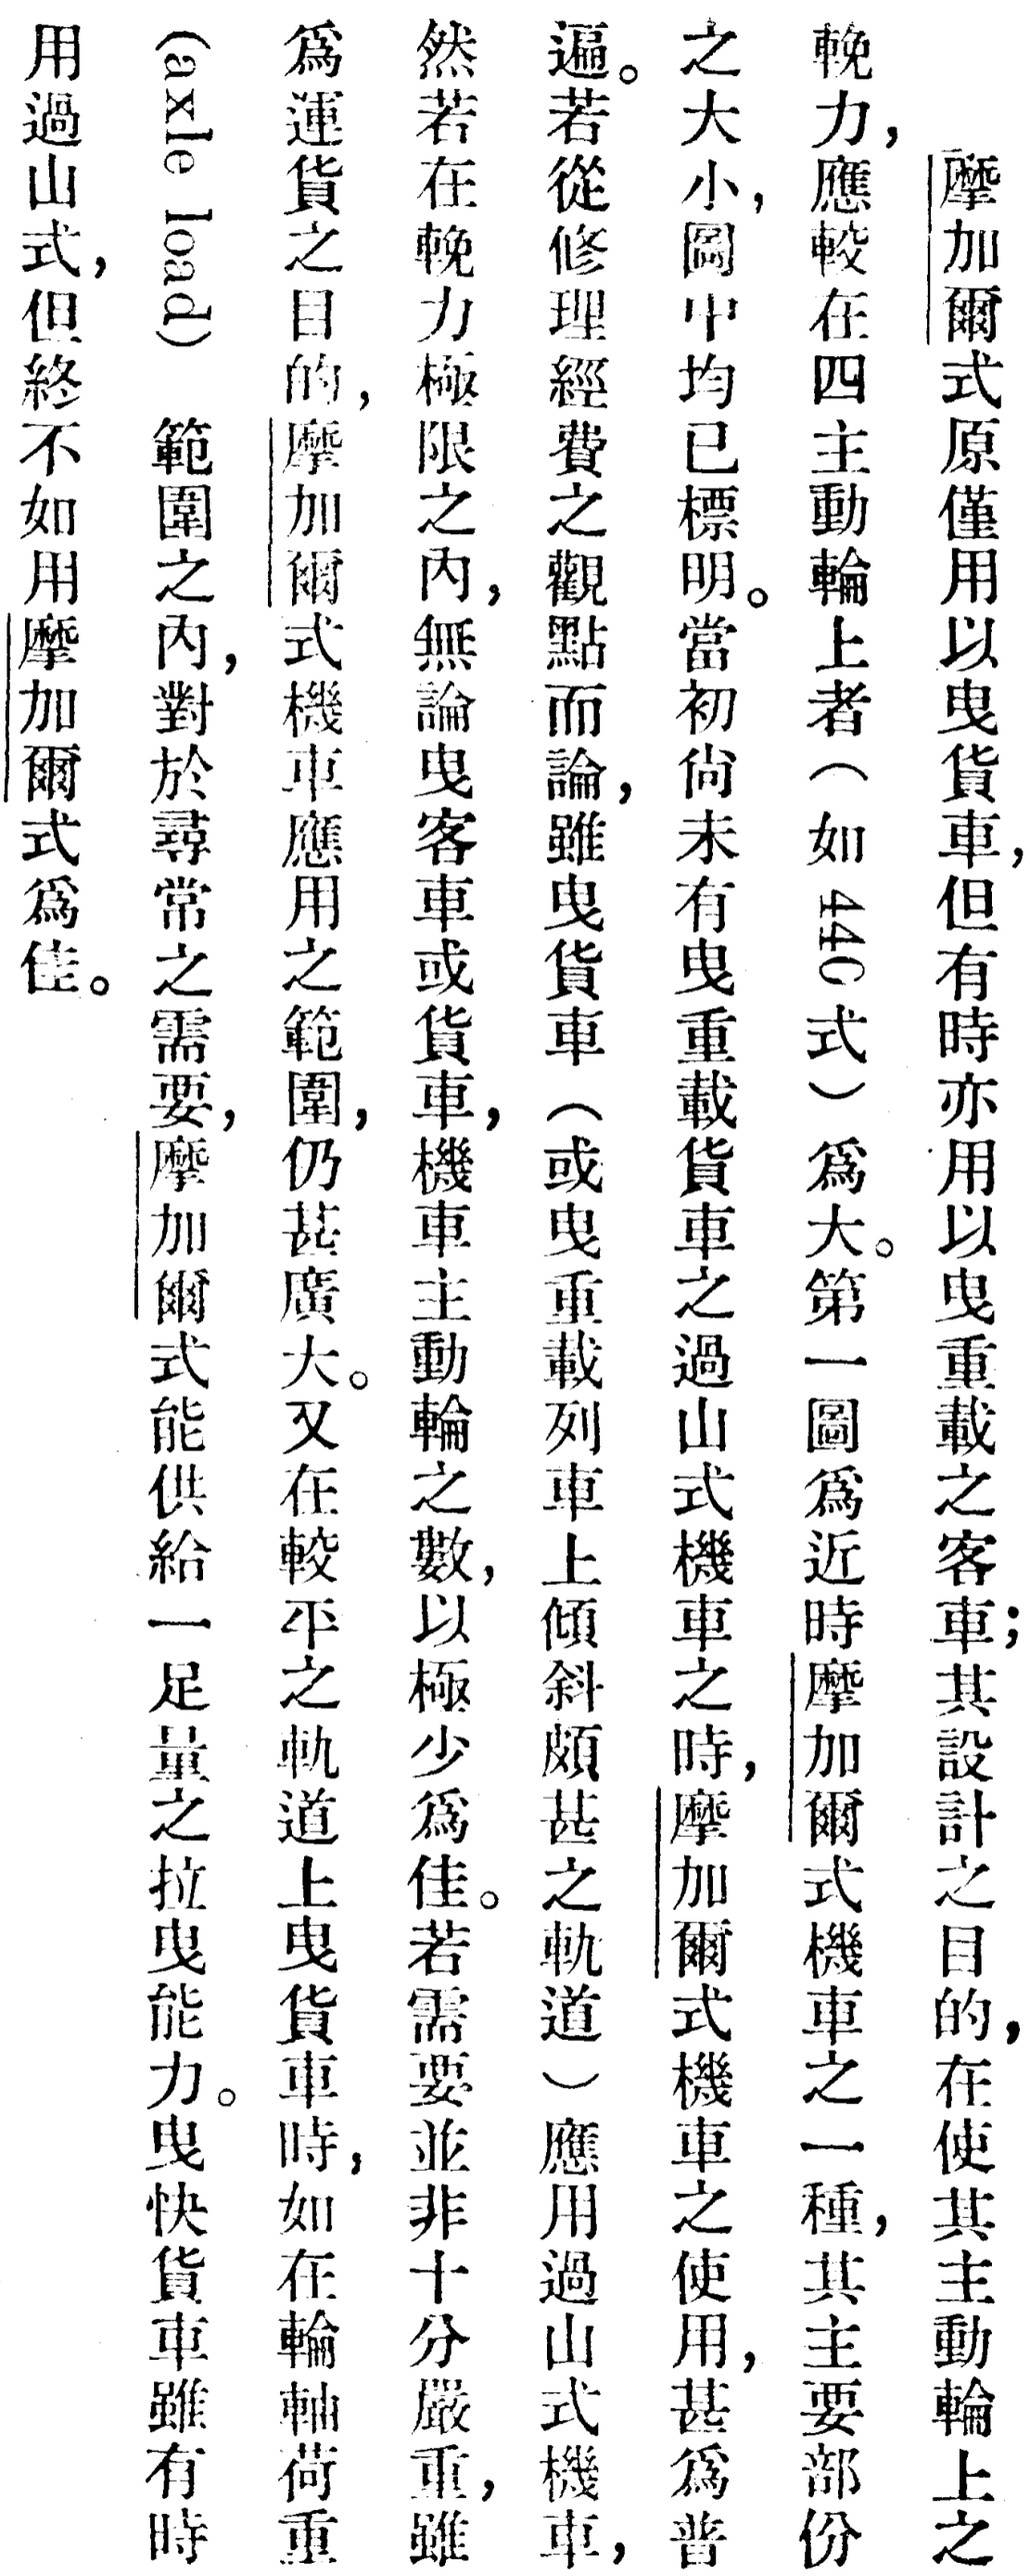 摩加爾式原僅用以曳貨車，但有時亦用以曳重載之客車；其設計之目的，在使其主動輪上之
輓力，應較在四主動輪上者（如44C式）爲大。第一圖爲近時摩加爾式機車之一種，其主要部份
之大小，圖中均已標明。當初尙未有曳重載貨車之過山式機車之時，摩加爾式機車之使用，甚爲普
遍。若從修理經費之觀點而論，雖曳貨車（或曳重載列車上傾斜頗甚之軌道）應用過山式機車，
然若在輓力極限之內，無論曳客車或貨車，機車主動輪之數，以極少爲佳。若需要並非十分嚴重，雖
爲運貨之目的，摩加爾式機車應用之範圍，仍甚廣大。又在較平之軌道上曳貨車時，如在輪軸荷重
(axle load) 範圍之內，對於尋常之需要，摩加爾式能供給一足量之拉曳能力。曳快貨車雖有時
用過山式，但終不如用摩加爾式爲佳。